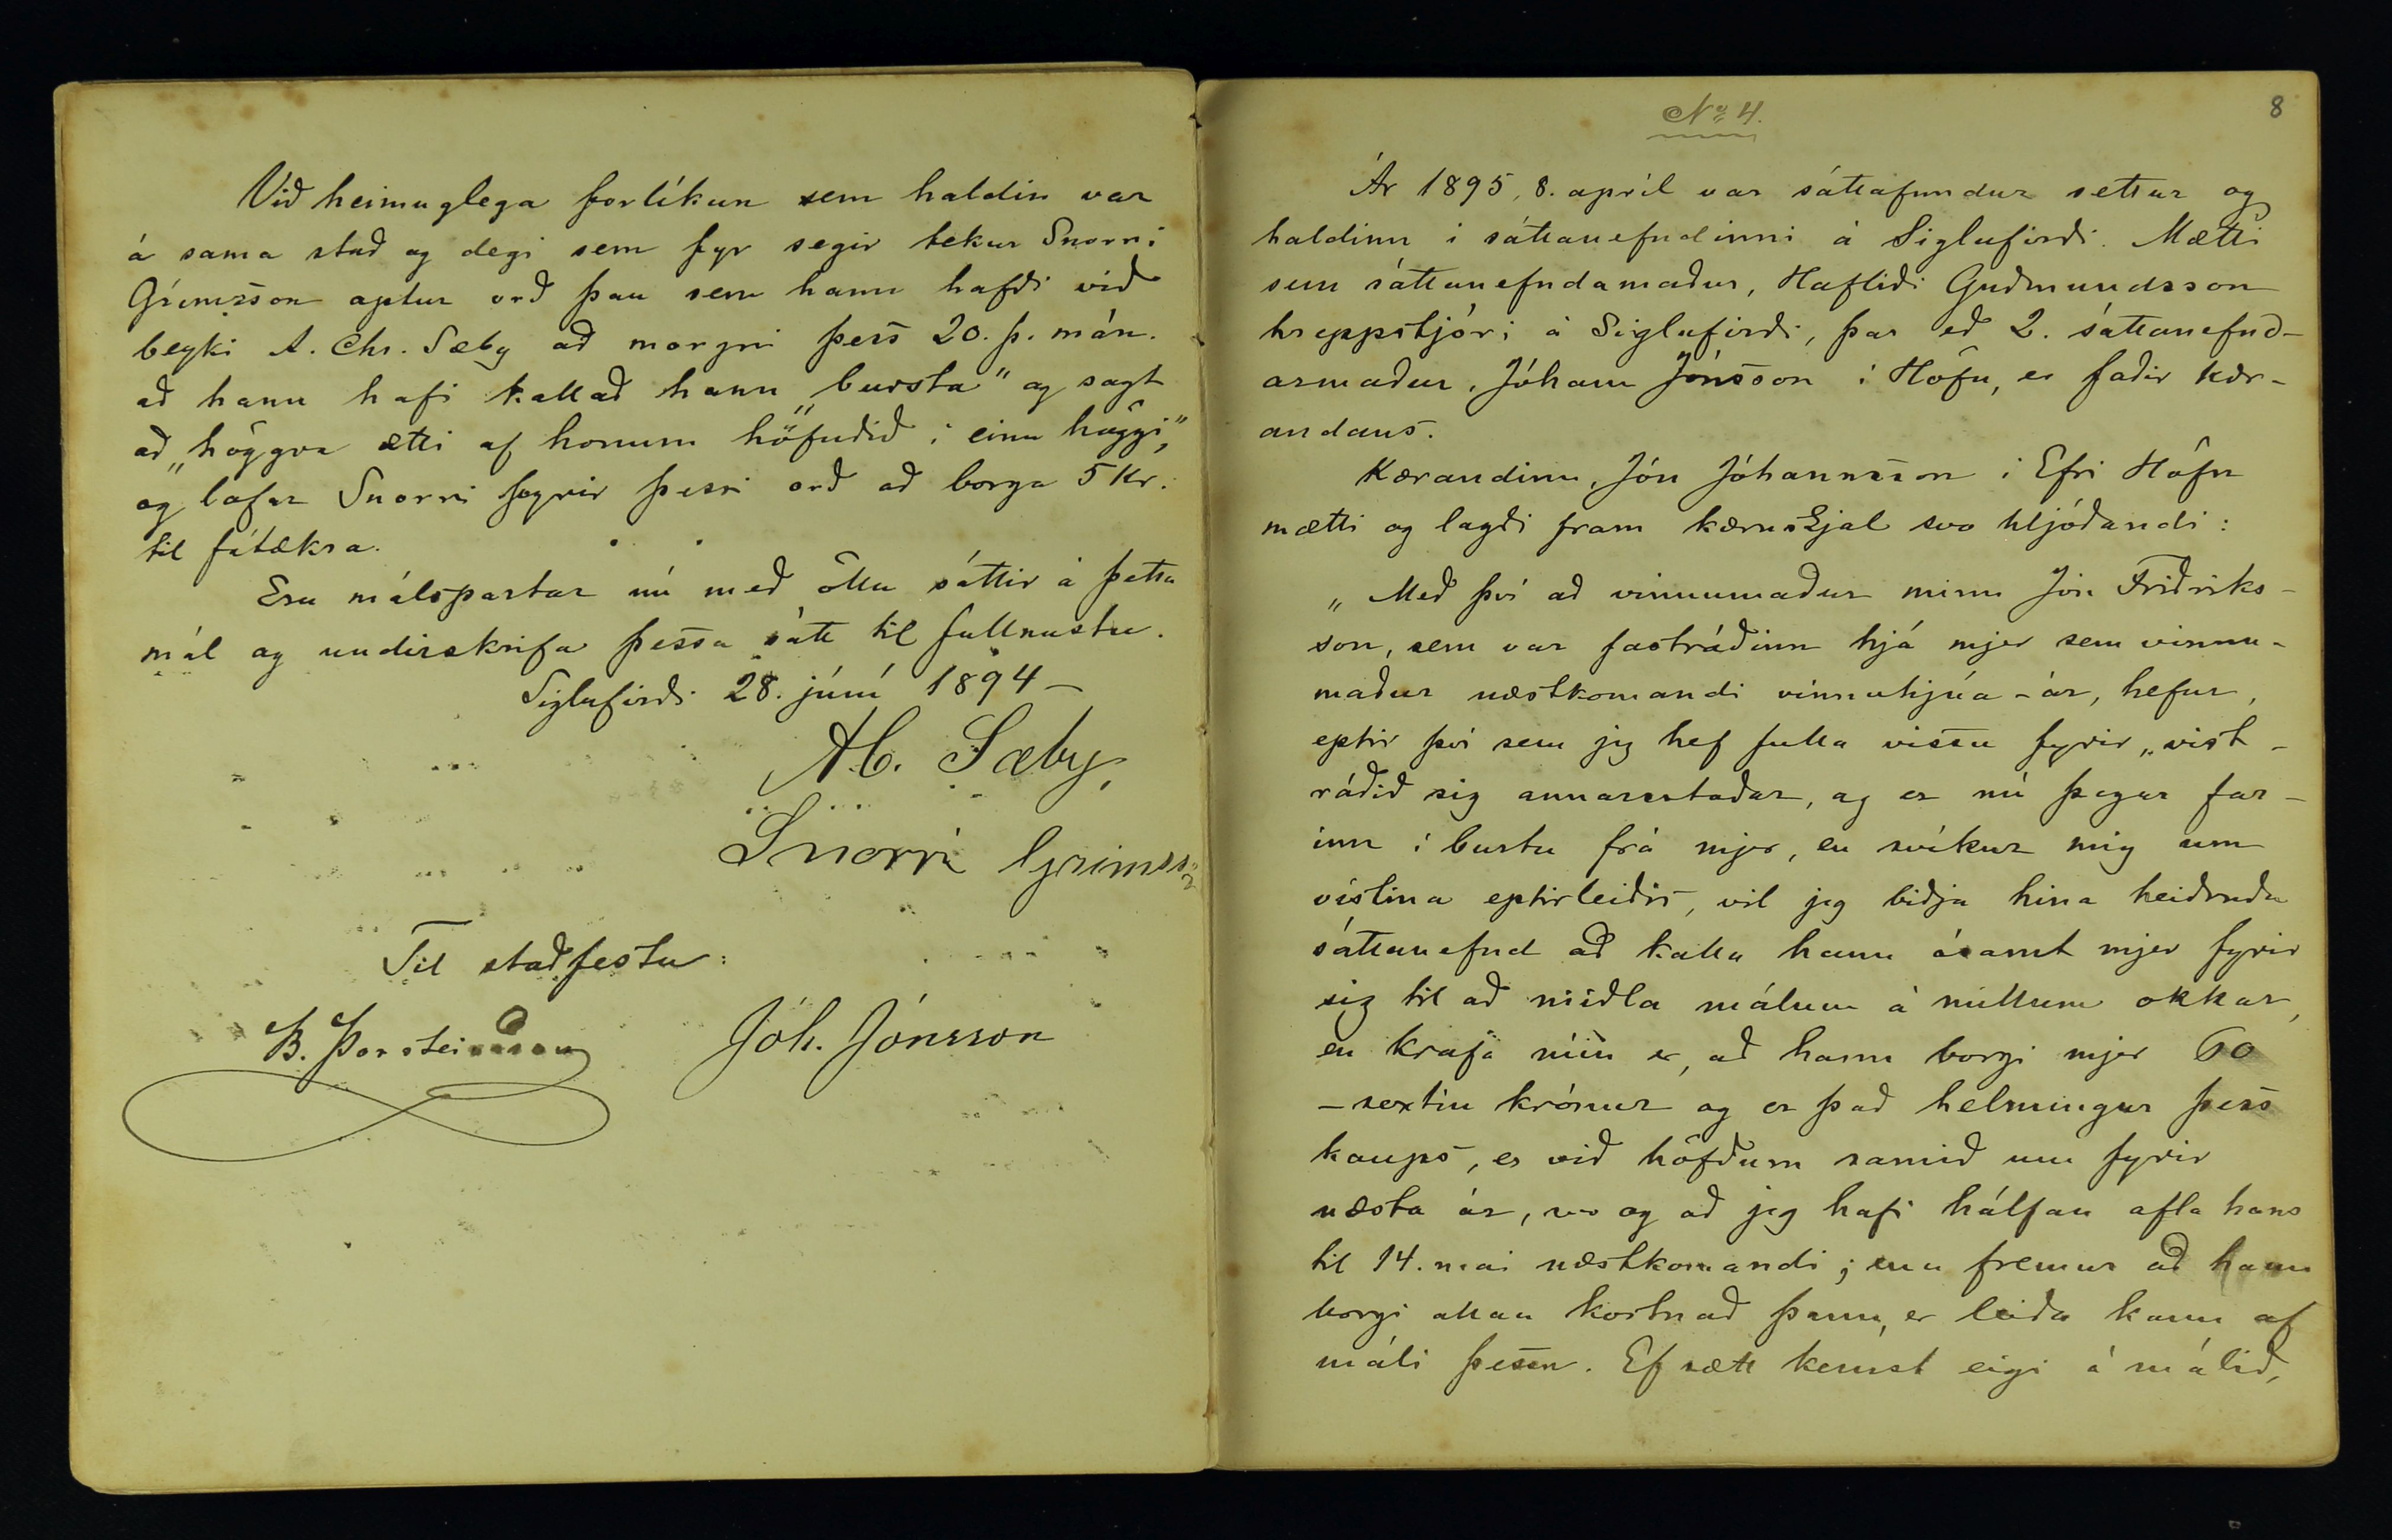 Við heimuglega forlíkun sem haldin var
á sama stað og degi sem fyr segir tekur Snorri
Grímsson aptur orð þau sem hann hafði við
beyki A. Chr. Sæby að morgni þess 20. þ. mán.
að hann hafi kallað hann „bursta" og sagt
að „höggva ætti af honum höfuðið í einu höggi,"
og lofar Snorri fyrir þessi orð að borga 5 kr.
til fátækra.
Eru málspartar nú með öllu sáttir á þetta
mál og undirskrifa þessa sátt til fullnustu.
Siglufirði 28. júní 1894 –
A.C. Sæby,
Snorri Grímss
Til staðfestu:
B. Þorsteinsson
Jóh. Jónsson
No 4.
8
Ár 1895, 8. apríl var sáttafundur settur og
haldinn i sáttanefndinni á Siglufirði. Mætti
sem sáttanefndamaður, Hafliði Guðmundsson
hreppstjóri á Siglufirði, þar eð 2. sáttanefnd-
armaður, Jóhann Jónsson í Höfn, er faðir kær-
andans.
Kærandinn, Jón Jóhannsson i Efri Höfn
mætti og lagði fram kæruskjal svo hljóðandi:
„Með því að vinnumaður minn Jón Friðriks-
son, sem var fastráðinn hjá mjer sem vinnu-
maður næstkomandi vinnuhjúa-ár, hefur,
eptir því sem jeg hef fulla vissu fyrir „vist-
ráðið sig annarsstaðar, og er nú þegar far-
inn í burtu frá mjer, en svíkur mig um
vistina eptirleiðis, vil jeg biðja hina heiðruðu
sáttanefnd að kalla hann ásamt mjer fyrir
sig til að miðla málum á millum okkar,
en krafa mín er, að hann borgi mjer 60
– sextíu krónur og er það helmingur þess
kaups, er við höfðum samið um fyrir
næsta ár, svo og að jeg hafi hálfan afla hans
til 14. mai næstkomandi; enn fremur að hann
borgi allan kostnað þann, er leiða kann af
máli þessu. Ef sætt kemst eigi á málið,